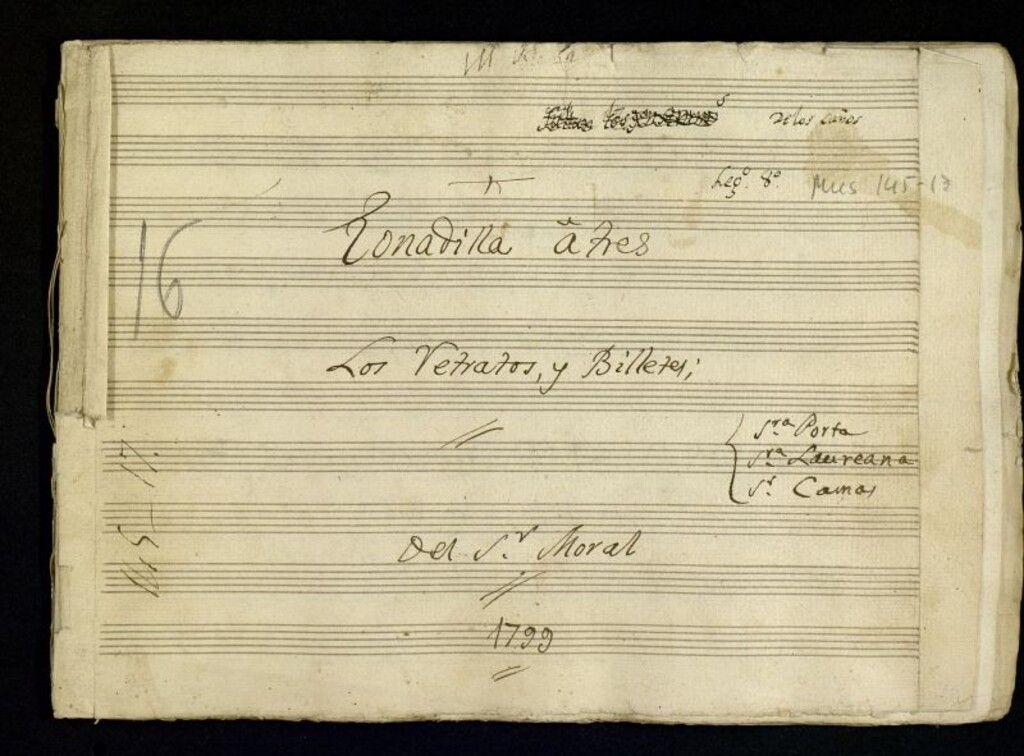 De los Caños
Leg.º 8.º Mus 145-17
Tonadilla â tres
16
Los Retratos, y Billetes;
S.ra Porta
S.ra Laureana
S.r Camas
145-17.
Del S.r Moral
1799